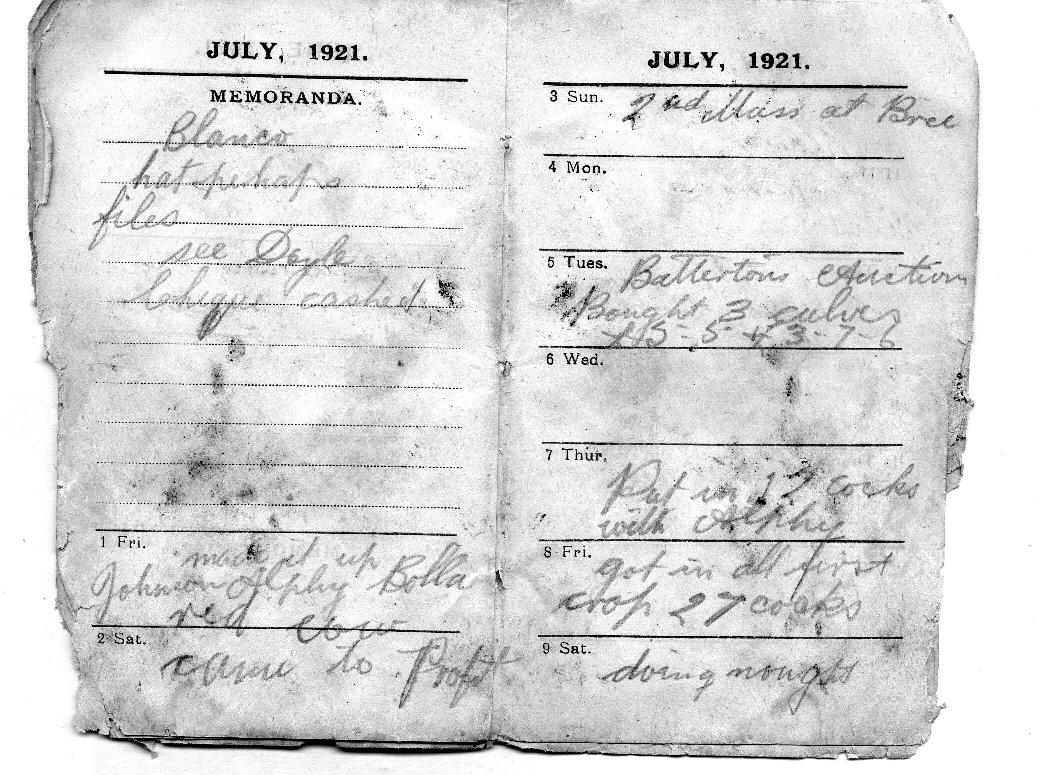 JULY, 1921.
MEMORANDA.
Blanco
hat perhaps
files
see Doyle
cashed
1 Fri.
made it up
Johnson Alphy Bolla
red cow
2 Sat.
came to Profit
JULY, 1921.
3 Sun. 2nd Mass at Bree
4 Mon.
5 Tues.
Battertons Auction
Bought 3 culves
£15-5 + 3-7-6
6 Wed.
7 Thur.
Put in 17 cocks
with Alphy
8 Fri.
got in all first
crop 27 cocks
9 Sat.
doing nought